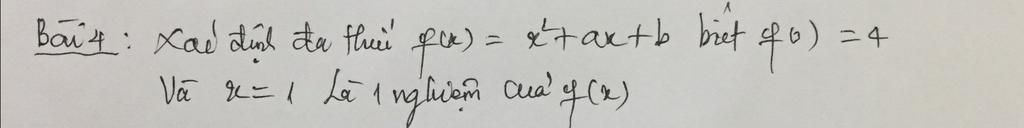 Bài 4: Xác định đa thức f(x) = x² + ax + b biết f(0) = 4
Và x = 1 Là 1 nghiệm của f(x)